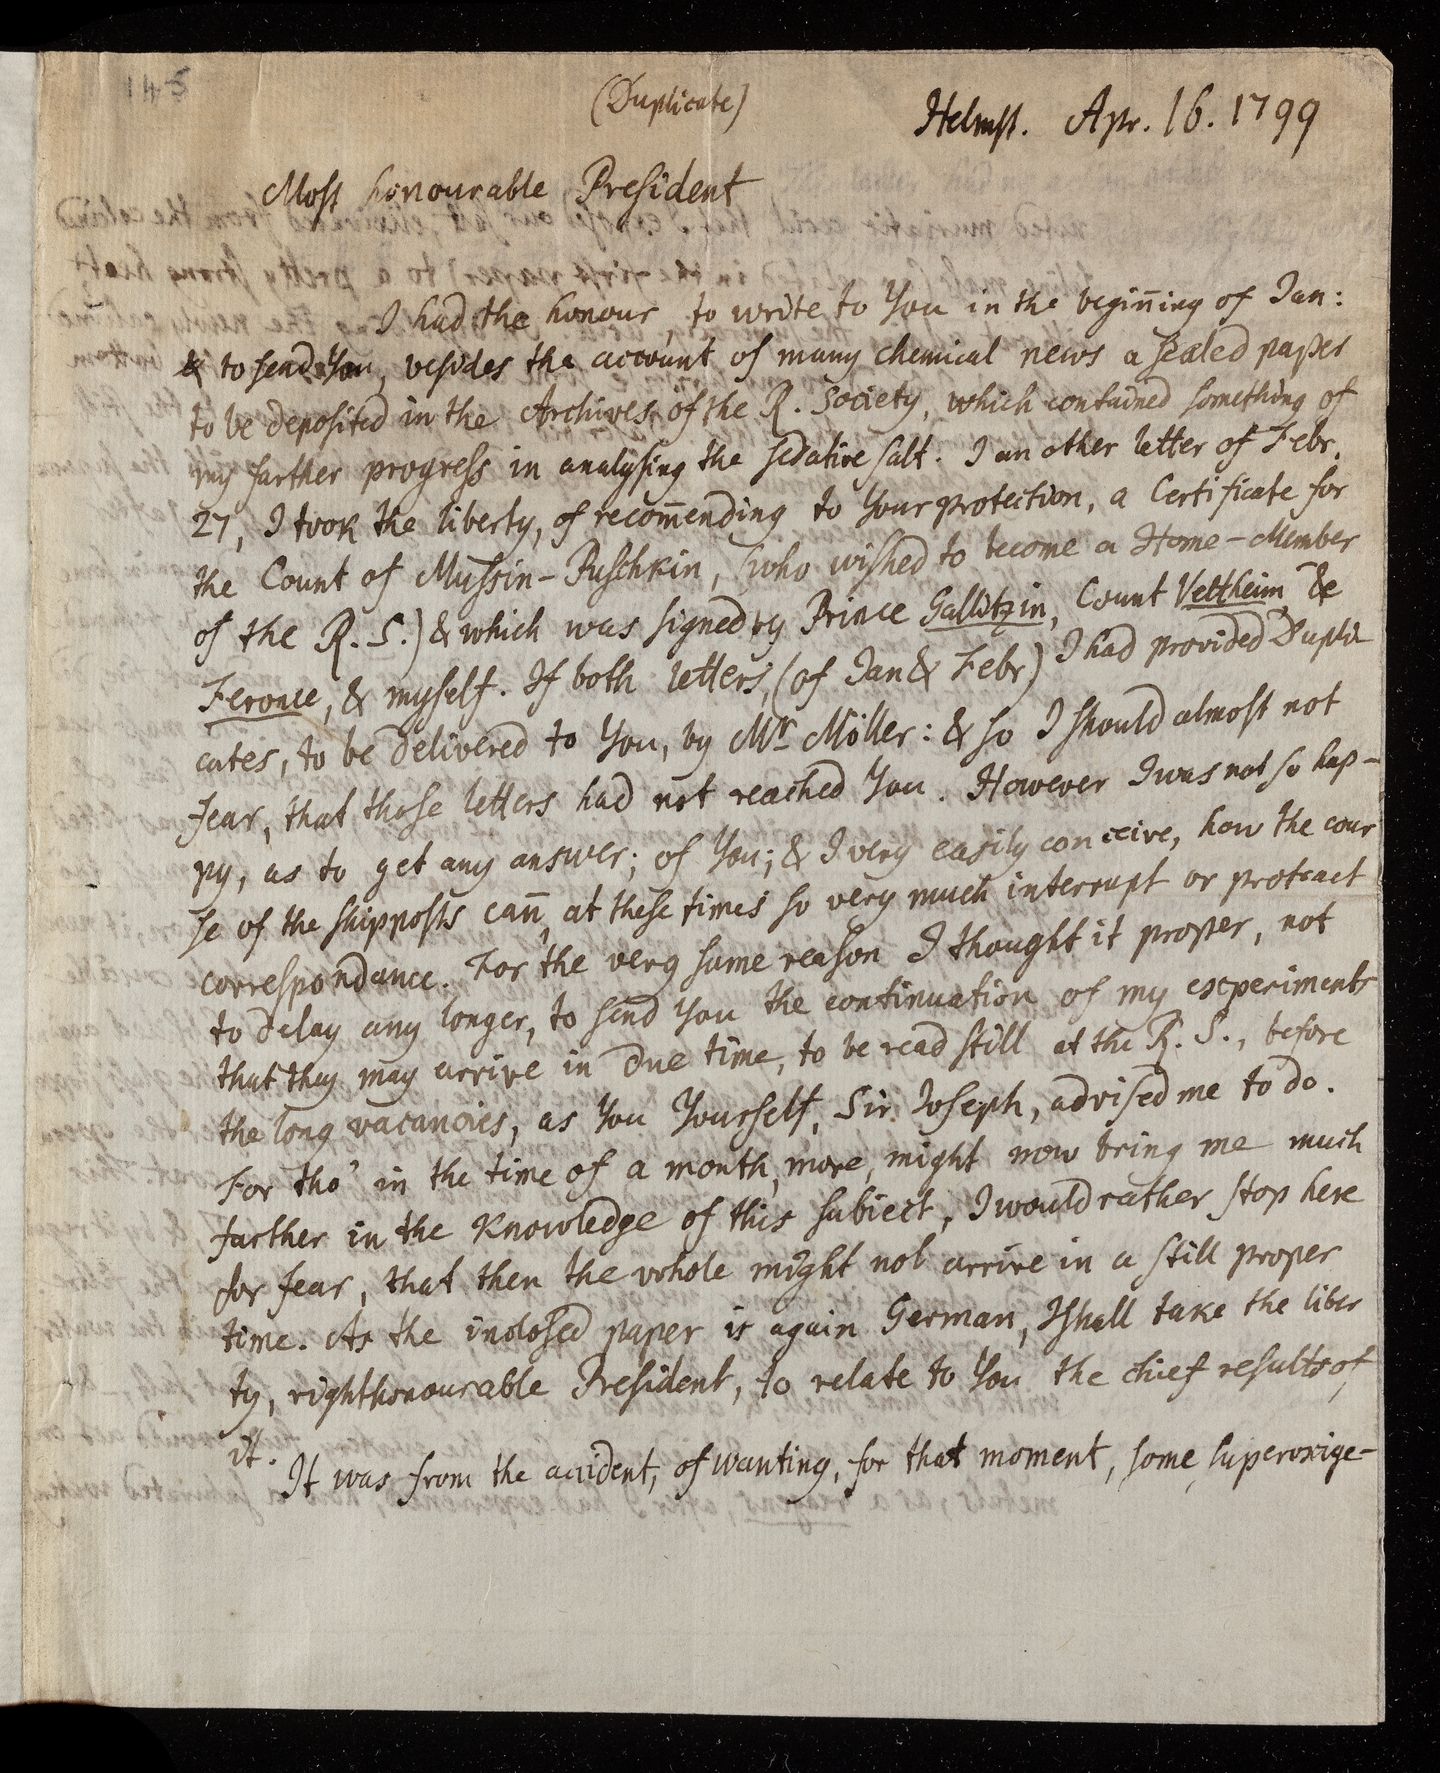 145
(Duplicate)
Helmst. Apr. 16. 1799
Most honourable President
I had the honour, to write to You in the begiñing of Jan:
& to send You, besides the account of many chemical news a sealed paper
to be deposited in the Archives of the R. Society, which contained something of
my farther progress in analysing the sedative salt. I an other letter of Febr.
27, I took the liberty, of recom̄ending to Your protection, a Certificate for
the Count of Mussin-Puschkin, (who wished to become a Home-Member
of the R. S.) & which was signed by Prince Gallitzin, Count Veltheim, de
Feronce, & myself. If both letters, (of Jan & Febr) I had provided Dupli
cates, to be delivered to You, by Mr Möller: & so I should almost not
fear, that those letters had not reached You. However I was not so hap-
py, as to get any answer; of You; & I very easily conceive, how the cour
se of the shipposts cañ, at these times so very much interrupt or protract
correspondance. For the very same reason I thought it proper, not
to delay any longer, to send You the continuation of my experiments
that they may arrive in due time, to be read still at the R. S., before
the long vacancies, as You Yourself, Sir Joseph, advised me to do.
For tho' in the time of a month, more, might now bring me much
farther in the Knowledge of this subject, I would rather stop here
for fear, that then the whole might not arrive in a still proper
time. As the inclosed paper is again German, I shall take the liber
ty, righthonourable President, to relate to You the chief results of
it.
It was from the accident, of wanting, for that moment, some superoxige-